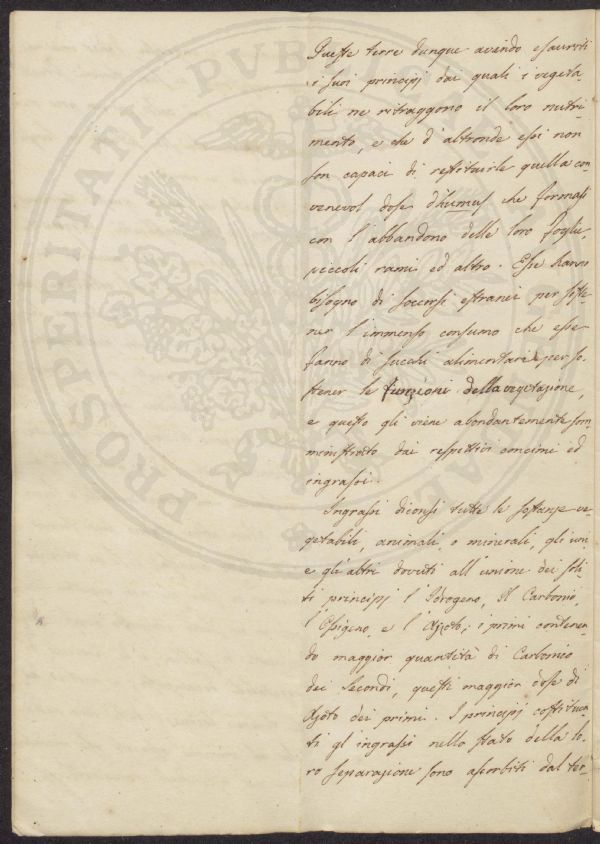 Queste terre dunque avendo esauriti
i suoi principj dai quali i vegeta-
bili ne ritraggono il loro nutri-
mento, e che d'altronde essi non
son capaci di restituirle quella con
venevol dose d'humus che formasi
con l'abbandono delle loro foglie,
piccoli rami ed altro. Esse hanno
bisogno di soccorsi estranei per soste-
ner l'immenso consumo che esse
fanno di succhi alimentari per so-
stener le funzioni della vegetazione,
e questo gli viene abondantemente som
ministrato dai respettivi concimi ed
ingrassi.
Ingrassi diconsi tutte le sostanze ve-
getabili, animali, o minerali, gli uni
e gli altri dovuti all'unione dei soli-
ti principj l'Idrogeno, il Carbonio,
l'Ossigeno, e l'Azoto; i primi contenen-
do maggior quantità di Carbonio
dei secondi, questi maggior dose di
Azoto dei primi. I principj costituen-
ti gl'ingrassi nello stato della lo-
ro separazione sono assorbiti dal ter-
PROSPERITATI PUBLICAE AU